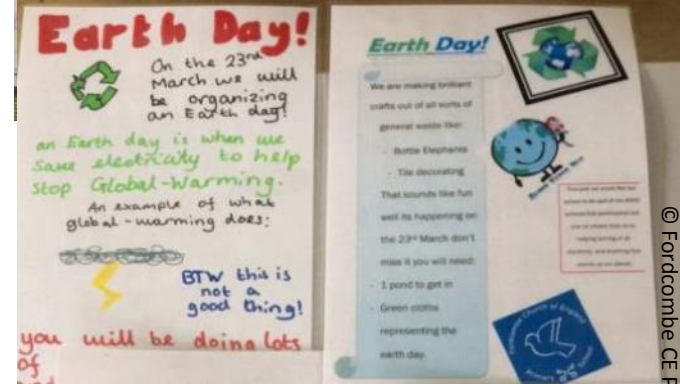 Earth Day!
On the 23rd
March we will
be organizing
an Earth day!
an Earth day is when we
save electricity to help
stop Global-Warming.
An example of what
global-warming does:
BTW this is
not a
good thing!
you will be doing lots
of
Earth Day!
We are making brilliant
crafts out of all sorts of
general waste like:
- Bottle Elephants
- Tile decorating
That sounds like fun
well its happening on
the 23rd March don't
miss it you will need:
- 1 pond to get in
- Green cloths
representing the
earth day.
© Fordcombe CE